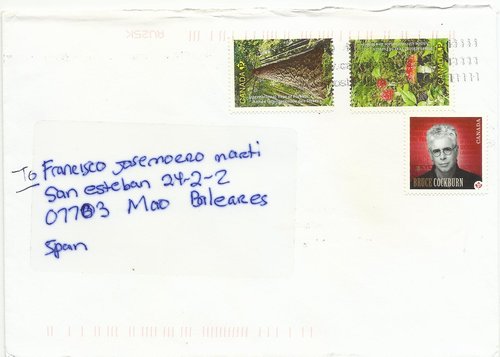 RU25K
CANADA
CANADA
CANADA
BRUCE COCKBURN
To Francisco
San esteban 24-2-2
07703 Mao Baleares
Spain